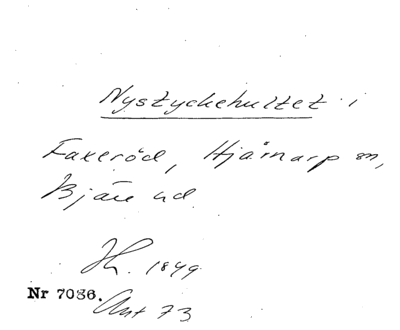 Nystyckehultet i
Faxeröd, Hjärnarp sn,
Bjäre hd
Jh. 1849.
Nr 7036.
Ant 73